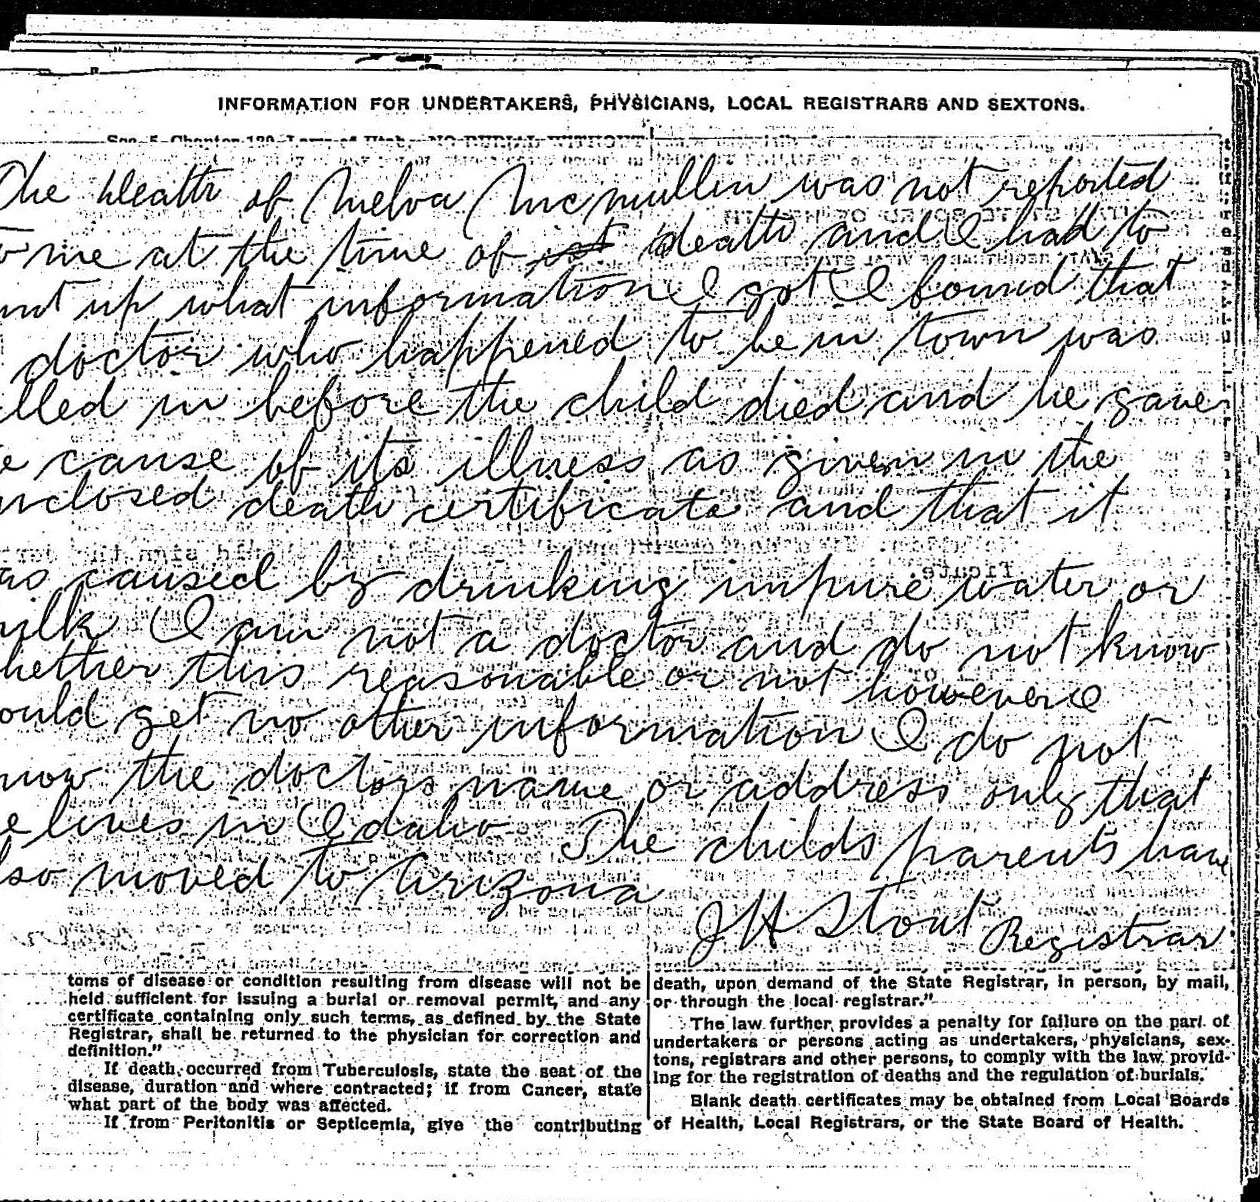 INFORMATION FOR UNDERTAKERS, PHYSICIANS, LOCAL REGISTRARS AND SEXTONS.
The Death of Melva McMullin was not reported
me at the time of its death and I had to
up what information I got I found that
doctor who happened to be in town was
lled in before the child died and he gave
e cause of its illness as given in the
nclosed death certificate and that it
as caused by drinking impure water or
ilk I am not a doctor and do not know
hether this reasonable or not however I
ould get no other information I do not
now the doctors name or address only that
e lives in Idaho The childs parents have
lso moved to Arizona
J H Stout Registrar
toms of disease or condition resulting from disease will not be
held sufficient for issuing a burial or removal permit, and any
certificate containing only such terms, as defined by the State
Registrar, shall be returned to the physician for correction and
definition."
If death occurred from Tuberculosis, state the seat of the
disease, duration and where contracted; if from Cancer, state
what part of the body was affected.
If from Peritonitis or Septicemia, give the contributing
death, upon demand of the State Registrar, in person, by mail,
or through the local registrar."
The law further provides a penalty for failure on the part of
undertakers or persons acting as undertakers, physicians, sex-
tons, registrars and other persons, to comply with the law provid-
ing for the registration of deaths and the regulation of burials.
Blank death certificates may be obtained from Local Boards
of Health, Local Registrars, or the State Board of Health.